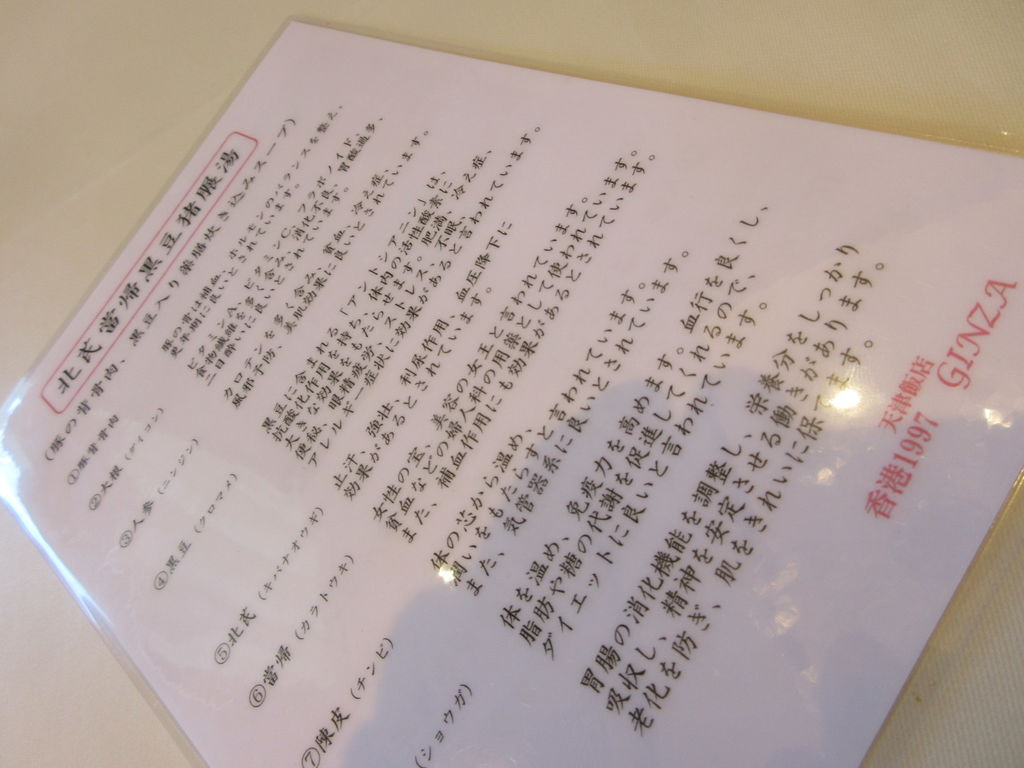 北芪當帰黒豆猪𦟌湯
(豚の背骨肉、黒豆入り薬膳炊き込みスープ)
①豚背骨肉
豚の骨は補血、ホルモンのバランスを整え
更年期に良いとされています。
②大根 (ダイコン)
ビタミンA、ビタミンC、フラボノイド
食物繊維を多く含み、消化不良、胃酸過多、
二日酔いに良いとされています。
③人参 (ニンジン)
カロテンを多く含み、貧血、冷え症、
風邪予防、美肌効果に良いとされています。
④黒豆 (クロマメ)
黒豆に含まれる「アントシアニン」は、
抗酸化作用を持ち、体内の活性酸素に
大きな効果をもたらせます。肥満、冷え症、
便秘、眼精疲労、ストレス、不眠、
アレルギー症状に効果があると言われています。
⑤北芪 (キバナオウギ)
止汗、強壮、利尿作用、血圧降下に
効果があるとされています。
⑥當帰 (カラトウキ)
女性の宝、美容の女王と言われています。
貧血などの婦人科の用薬として使われています。
また、補血作用にも効果があるとされています。
⑦陳皮 (チンピ)
体の芯から温め、
潤いをもたらすと言われています。
また、気管認系に良いとされています。
(ショウガ)
体を温め、免疫力を高めます。血行を良くし、
脂肪や糖の代謝を促進してくれるので、
ダイエットに良いと言われています。
胃腸の消化機能を調整し、栄養分をしっかり
吸収し、精神を安定させる働きがあります。
老化を防ぎ、肌をきれいに保てます。
天津飯店
香港1997 GINZA